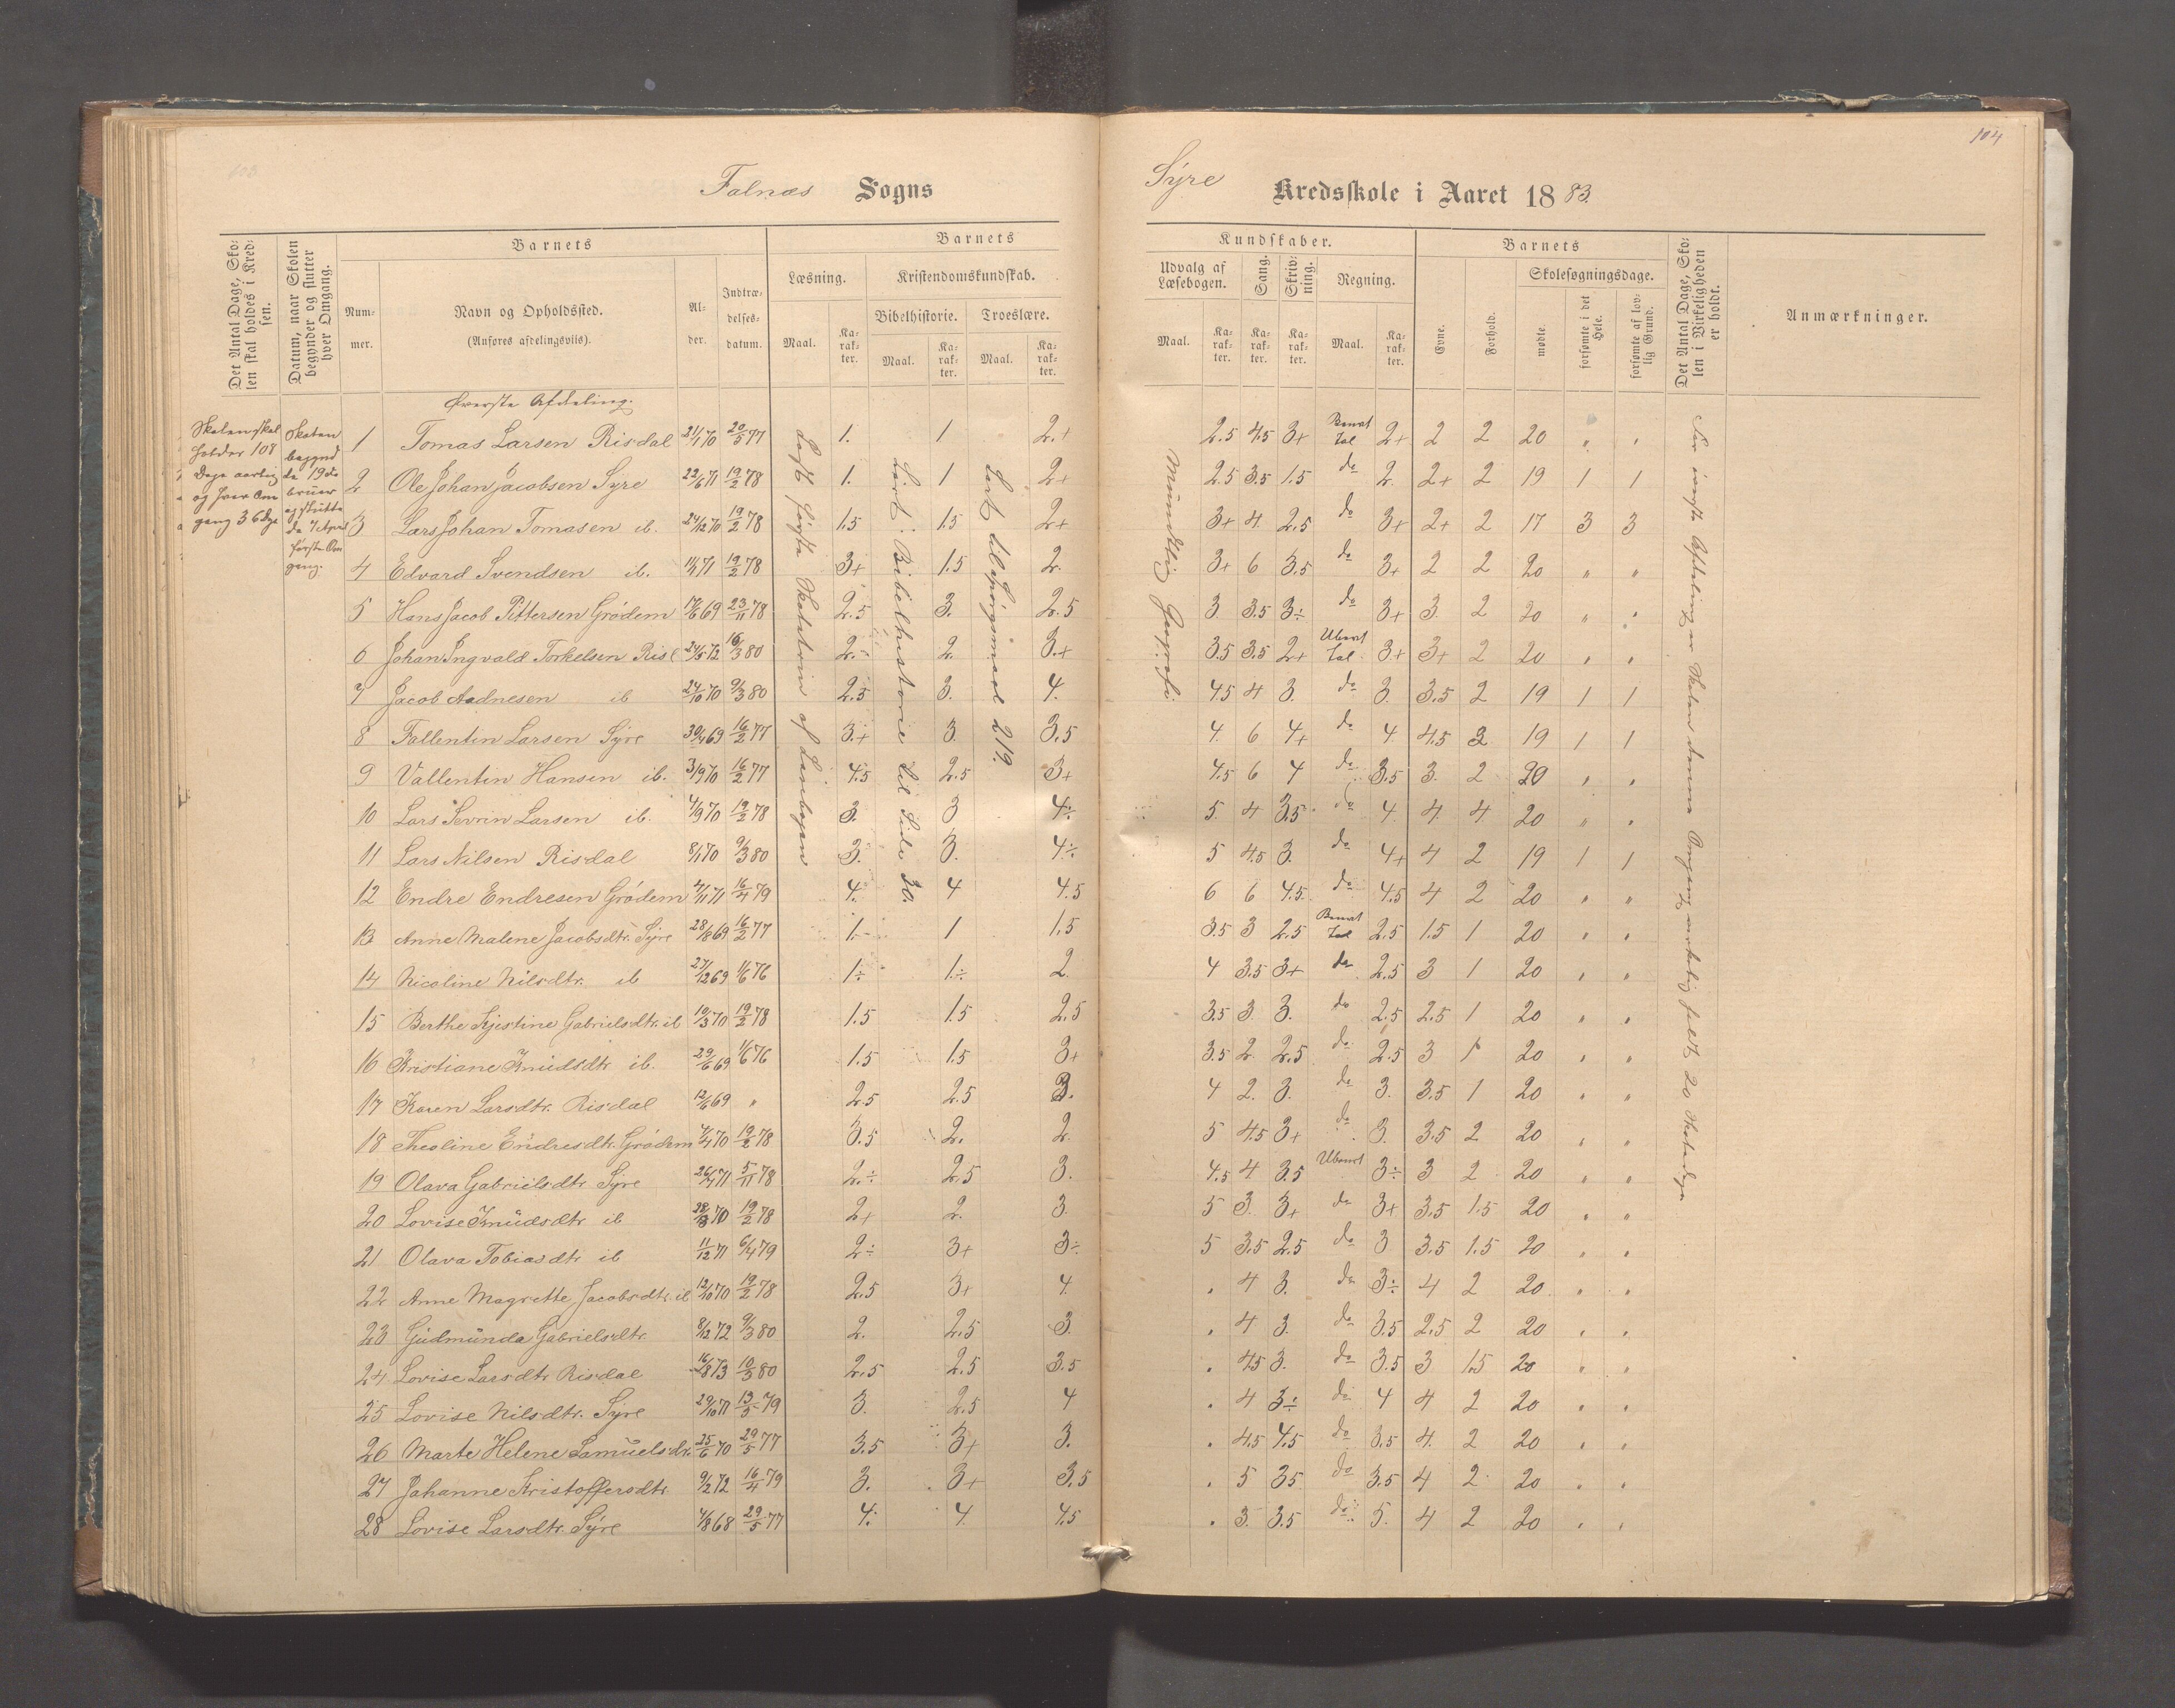 104
Falnæs Sogns
Syre Kredsskole i Aaret 1883.
Det Antal Dage, Skolen skal holdes i Kredsen.
Datum, naar Skolen begynder og slutter hver Omgang.
Barnets
Nummer.
Navn og Opholdssted.
(Anføres afdelingsviis).
Alder.
Indtrædelsesdatum.
Barnets
Læsning.
Maal.
Karakter.
Kristendomskundskab.
Bibelhistorie.
Maal.
Karakter.
Troeslære.
Maal.
Karakter.
Kundskaber.
Udvalg af Læsebogen.
Maal.
Karakter.
Sang.
Karakter.
Skrivning.
Karakter.
Regning.
Maal.
Karakter.
Barnets
Evne.
Forhold.
Skolesøgningsdage.
mødte.
forsømte i det Hele.
forsømte af lovlig Grund.
Det Antal Dage, Skolen i Virkeligheden er holdt.
Anmærkninger.
Skolen skal
holdes 108
Dage aarlig
og hver Om
gang 36 Dge
Skolen
begynd
te 19de
bruar
og slutte
de 7 April
første Om
gang.
Øverste Afdeling.
Læst første Skoletrin af Læsebogen
Lært Bibelhistorie til Side 30.
Lært til Spørgsmaal 219.
Mundtlig Geografi
1 Tomas Larsen Risdal 21/1 70 20/5 77 1. 1 2.+ 2.5 4.5 3+ Benævt Tal 2+ 2 2 20 " "
2 Ole Johan Jacobsen Syre 22/6 71 19/2 78 1. 1 2+ 2.5 3.5 1.5 do 2. 2+ 2 19 1 1
3 Lars Johan Tomasen ib. 24/12 70 19/2 78 1.5 1.5 2+ 3+ 4. 2.5 do 3+ 2+ 2 17 3 3
4 Edvard Svendsen ib. 19/2 78 3+ 1.5 2. 3+ 6 3.5 do 3+ 2 2 20 " "
5 Hans Jacob Pittersen Grødem 17/6 69 23/11 78 2.5 3. 2.5 3 3.5 3÷ do 3+ 3. 2 20 " "
6 Johan Ingvald Torkelsen Risl 24/5 72 16/3 80 2.÷ 2. 3.+ 3.5 3.5 2+ Ubevnt Tal 3+ 3+ 2 20 " "
7 Jacob Aadnesen ib 24/10 70 9/3 80 2.5 3. 4. 4.5 4 3. do 3. 3.5 2 19 1 1
8 Fallentin Larsen Syre 30/4 69 16/2 77 3.+ 3. 3.5 4. 6 4+ do 4 4.5 3 19 1 1
9 Vallentin Hansen ib. 3/9 70 16/2 77 4.5 2.5 3+ 4.5 6 4 do 3.5 3. 2 20 " "
10 Lars Sevrin Larsen ib. 4/9 70 19/2 78 3. 3 4÷ 5. 4 3.5 do 4. 4. 4 20 " "
11 Lars Nilsen Risdal 8/1 70 9/3 80 3. 3. 4÷ 5 4.5 3. do 4+ 4 2 19 1 1
12 Endre Endresen Grødem 4/11 71 16/4 79 4. 4 4.5 6 6 4.5 do 4.5 4 2 20 " "
13 Anne Malene Jacobsdtr. Syre 28/8 69 16/2 77 1. 1 1.5 3.5 3 2.5 Benævt Tal 2.5 1.5 1 20 " "
14 Nicoline Nilsdtr. ib 27/12 69 1/6 76 1÷ 1÷ 2. 4 3.5 3+ do 2.5 3 1 20 " "
15 Berthe Kjestine Gabrielsdtr. ib 10/3 70 19/2 78 1.5 1.5 2.5 3.5 3 3. do 2.5 2.5 1 20 " "
16 Kristiane Knudsdtr ib. 29/6 69 1/6 76 1.5 1.5 3+ 3.5 2 2.5 do 2.5 3 1 20 " "
17 Karen Larsdtr. Risdal 12/6 69 " 2.5 2.5 3. 4 2. 3. do 3. 3.5 1 20 " "
18 Theoline Endresdtr. Grødem 4/4 70 19/2 78 3.5 2. 2. 5 4.5 3+ do 3. 3.5 2 20 " "
19 Olava Gabrielsdtr Syre 26/4 71 5/11 78 2.÷ 2.5 3. 4.5 4 3.5 Ubevnt 3÷ 3 2 20 " "
20 Lovise Knudsdtr ib 28/3 70 19/2 78 2+ 2. 3. 5 3. 3+ do 3+ 3.5 1.5 20 " "
21 Olava Tobiasdtr ib 11/12 71 6/4 79 2÷ 3+ 3÷ 5 3.5 2.5 do 3 3.5 1.5 20 " "
22 Anne Magrette Jacobsdtr. ib 12/10 70 19/2 78 2.5 3+ 4. " 4 3. do 3÷ 4 2 20 " "
23 Gudmunda Gabrielsdtr. 8/12 72 9/3 80 2. 2.5 3. " 4 3. do 3.5 2.5 2 20 " "
24 Lovise Larsdtr Risdal 16/8 73 10/3 80 2.5 2.5 3.5 " 4.5 3. do 3.5 3 1.5 20 " "
25 Lovise Nilsdtr. Syre 29/10 71 13/5 79 3. 2.5 4 " 4 3÷ do 4 4 2 20 " "
26 Marte Helene Samuelsdr. 25/6 70 29/5 77 3.5 3+ 3. " 4.5 4.5 do 3.5 4. 2 20 " "
27 Johanne Kristoffersdtr 9/2 72 16/4 79 3. 3+ 3.5 " 5 3.5 do 3.5 4 2 20 " "
28 Lovise Larsdtr. Syre 4/8 68 29/5 77 4. 4. 4.5 " 3. 3.5 do 5. 4 2 20 " "
øverste Afdeling er Skolen denne Omgang virkelig holdt 20 Skoledage